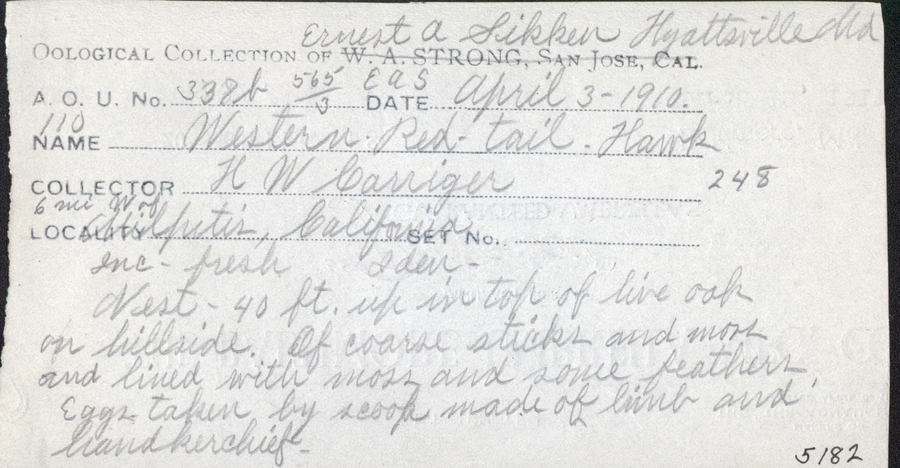 Ernest A Sikken Hyattsville Md
OOLOGICAL COLLECTION OF W. A. STRONG, SAN JOSE, CAL.
A. O. U. No. 337b 565/3 EAS DATE April 3-1910.
110
NAME Western Red-tail. Hawk
COLLECTOR H W Carriger 248
6 mi W of
LOCALITY Milpitis, California SET No.
Inc - fresh Iden -
Nest - 40 ft. up in top of live oak
on hillside. Of coarse sticks and moss
and lined with moss and some feathers
Eggs taken by scoop made of limb and
handkerchief -
5182